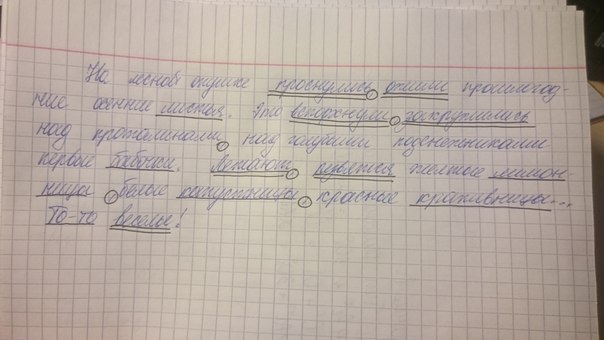 На лесной опушке проснулись, ожили прошлогод-
ние осенние листья. Это вспорхнули, закружились
над проталинами, над голубыми подснежниками
первые бабочки. Летают, резвятся желтые лимон-
ницы, белые капустницы, красные крапивницы...
То-то веселье!